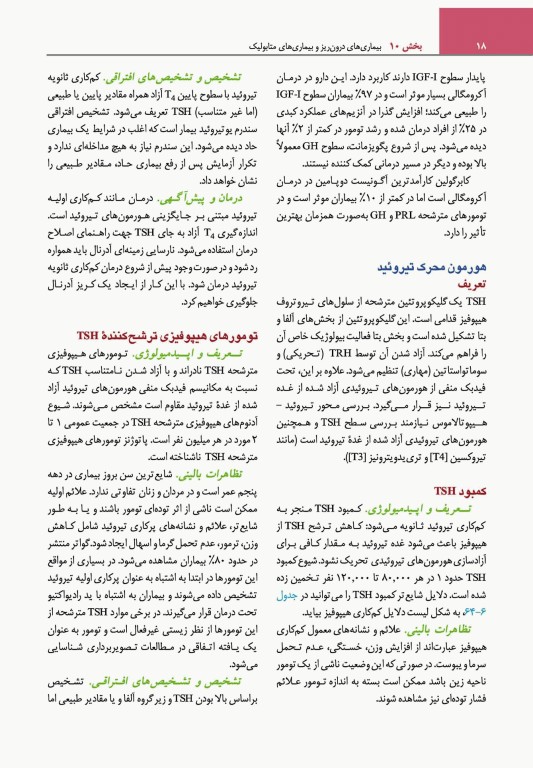 ۱۸
بخش ۱۰ بیماری‌های درون‌ریز و بیماری‌های متابولیک
پایدار سطوح IGF-I دارند کاربرد دارد. ایـن دارو در درمـان
آکرومگالی بسیار موثر است و در ۹۷٪ بیماران سطوح IGF-I
را طبیعی می‌کند؛ افزایش گذرا در آنزیم‌های عملکرد کبدی
در ۲۵٪ از افراد درمان شده و رشد تومور در کمتر از ۲٪ آنها
دیده می‌شود. پس از شروع پگویزمانت، سطوح GH معمولاً
بالا بوده و دیگر در مسیر درمانی کمک کننده نیستند.
کابرگولین کارآمدترین آگـونیست دوپـامین در درمـان
آکرومگالی است اما در کمتر از ۱۰٪ بیماران موثر است و در
تومورهای مترشحه PRL و GH به‌صورت همزمان بهترین
تأثیر را دارد.
هورمون محرک تیروئید
تعریف
TSH یک گلیکوپروتئین مترشحه از سلول‌های تـیروتروف
هیپوفیز قدامی است. این گلیکوپروتئین از بخش‌های آلفا و
بتا تشکیل شده است و بخش بتا فعالیت بیولوژیک خاص آن
را فراهم می‌کند. آزاد شدن آن توسط TRH (تـحریکی) و
سوماتواستاتین (مهاری) تنظیم می‌شود. علاوه بر این، تحت
فیدبک منفی از هورمون‌های تـیروئیدی آزاد شـده از غـده
تـیروئید نـیز قـرار مـی‌گیرد. بـررسی مـحور تـیروئید -
هـیپوتالاموس نـیازمند بـررسی سـطح TSH و هـمچنین
هورمون‌های تیروئیدی آزاد شده از غدهٔ تیروئید است (مانند
تیروکسین [T4] و تری‌یدوتیرونیز [T3]).
کمبود TSH
تـعریف و اپـیدمیولوژی. کـمبود TSH مـنجر بـه
کم‌کاری تیروئید ثـانویه مـی‌شود: کـاهش تـرشح TSH از
هیپوفیز باعث می‌شود غده تیروئید بـه مـقدار کـافی بـرای
آزادسازی هورمون‌های تیروئیدی تحریک نشود. شیوع کمبود
TSH حدود ۱ در هر ۸۰,۰۰۰ تا ۱۲۰,۰۰۰ نفر تـخمین زده
شده است. دلایل شایع‌تر کمبود TSH را می‌توانید در جدول
۶-۶۴، به شکل لیست دلایل کم‌کاری هیپوفیز بیابید.
تظاهرات بالینی. علائم و نشانه‌های معمول کم‌کاری
هیپوفیز عبارت‌اند از افزایش وزن، خسـتگی، عـدم تـحمل
سرما و یبوست. در صورتی که این وضعیت ناشی از یک تومور
ناحیه زین باشد ممکن است بسته به اندازه تـومور عـلائم
فشار توده‌ای نیز مشاهده شوند.
تشخیص و تشخیص‌های افتراقی. کم‌کاری ثانویه
تیروئید با سطوح پایین T₄ آزاد همراه مقادیر پایین یا طبیعی
(اما غیر متناسب) TSH تعریف می‌شود. تشخیص افتراقی
سندرم یوتیروئید بیمار است که اغلب در شرایط یک بیماری
حاد دیده می‌شود. این سندرم نیاز به هیچ مداخله‌ای ندارد و
تکرار آزمایش پس از رفع بیماری حـاد، مـقادیر طـبیعی را
نشان خواهد داد.
درمان و پیش‌آگـهی. درمـان مـانند کـم‌کاری اولیـه
تیروئید مبتنی بـر جـایگزینی هـورمون‌های تـیروئید است.
اندازه‌گیری T₄ آزاد به جای TSH جهت راهـنمای اصـلاح
درمان استفاده می‌شود. نارسایی زمینه‌ای آدرنال باید همواره
رد شود و در صورت وجود پیش از شروع درمان کم‌کاری ثانویه
تیروئید درمان شود. با این کـار از ایـجاد یک کـریز آدرنـال
جلوگیری خواهیم کرد.
تومورهای هیپوفیزی ترشح‌کنندهٔ TSH
تـعریف و اپـیدمیولوژی. تـومورهای هـیپوفیزی
مترشحه TSH نادراند و با آزاد شدن نـامتناسب TSH کـه
نسبت به مکانیسم فیدبک منفی هورمون‌های تیروئید آزاد
شده از غدهٔ تیروئید مقاوم است مشخص مـی‌شوند. شـیوع
آدنوم‌های هیپوفیزی مترشحه TSH در جمعیت عمومی ۱ تا
۲ مورد در هر میلیون نفر است. پاتوژنز تومورهای هیپوفیزی
مترشحه TSH ناشناخته است.
تظاهرات بالینی. شایع‌ترین سن بروز بیماری در دهه
پنجم عمر است و در مردان و زنان تفاوتی ندارد. علائم اولیه
ممکن است ناشی از اثر توده‌ای تومور باشند و یـا بـه طـور
شایع‌تر، علائم و نشانه‌های پرکاری تیروئید شامل کـاهش
وزن، ترمور، عدم تحمل گرما و اسهال ایجاد شود. گواتر منتشر
در حدود ۸۰٪ بیماران مشاهده می‌شود. در بسیاری از مواقع
این تومورها در ابتدا به اشتباه به عنوان پرکاری اولیه تیروئید
تشخیص داده می‌شوند و بیماران به اشتباه با ید رادیواکتیو
تحت درمان قرار می‌گیرند. در برخی موارد TSH مترشحه از
این تومورها از نظر زیستی غیرفعال است و تومور به عنوان
یک یـافته اتـفاقی در مـطالعات تـصویربرداری شـناسایی
می‌شود.
تشخیص و تشـخیص‌های افـتراقـی. تشـخیص
براساس بالا بودن TSH و زیر گروه آلفا و یا مقادیر طبیعی اما